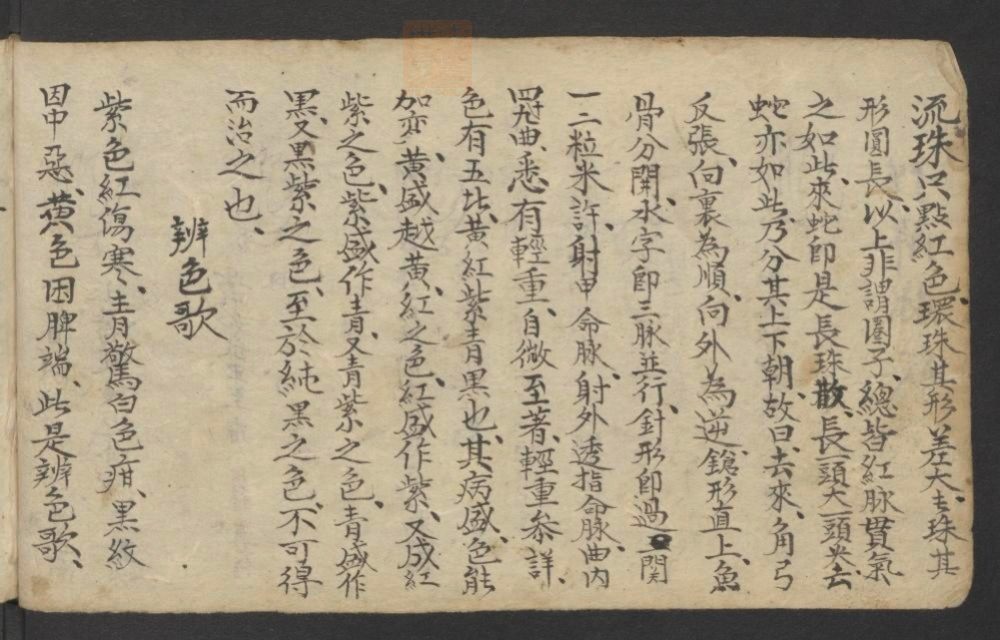 流珠只點紅色、環珠其形差大、長珠其
形圓長、以上非謂圈子、總皆紅脉貫氣
之如此、來蛇即是長珠散、長一頭大一頭尖、去
蛇亦如此、乃分其上下朝、故曰去來、角弓
反張、向裏為順、向外為逆、鎗形直上、魚
骨分開、水字即三脉並行、針形即過一關
一二粒米許、射甲命脉、射外透指命脉、曲内
曲、悉有輕重、自微至著、輕重參詳、
色有五比、黃紅紫青黑也、其病盛、色能
加変、黃盛越黃、紅之色、紅盛作紫、又成紅
紫之色、紫盛作青、又青紫之色、青盛作
黑、又黑紫之色、至於純黑之色、不可得
而治之也、
辨色歌
紫色紅傷寒、青驚白色疳、黑紋
因中惡、黃色困脾端、此是辨色歌、